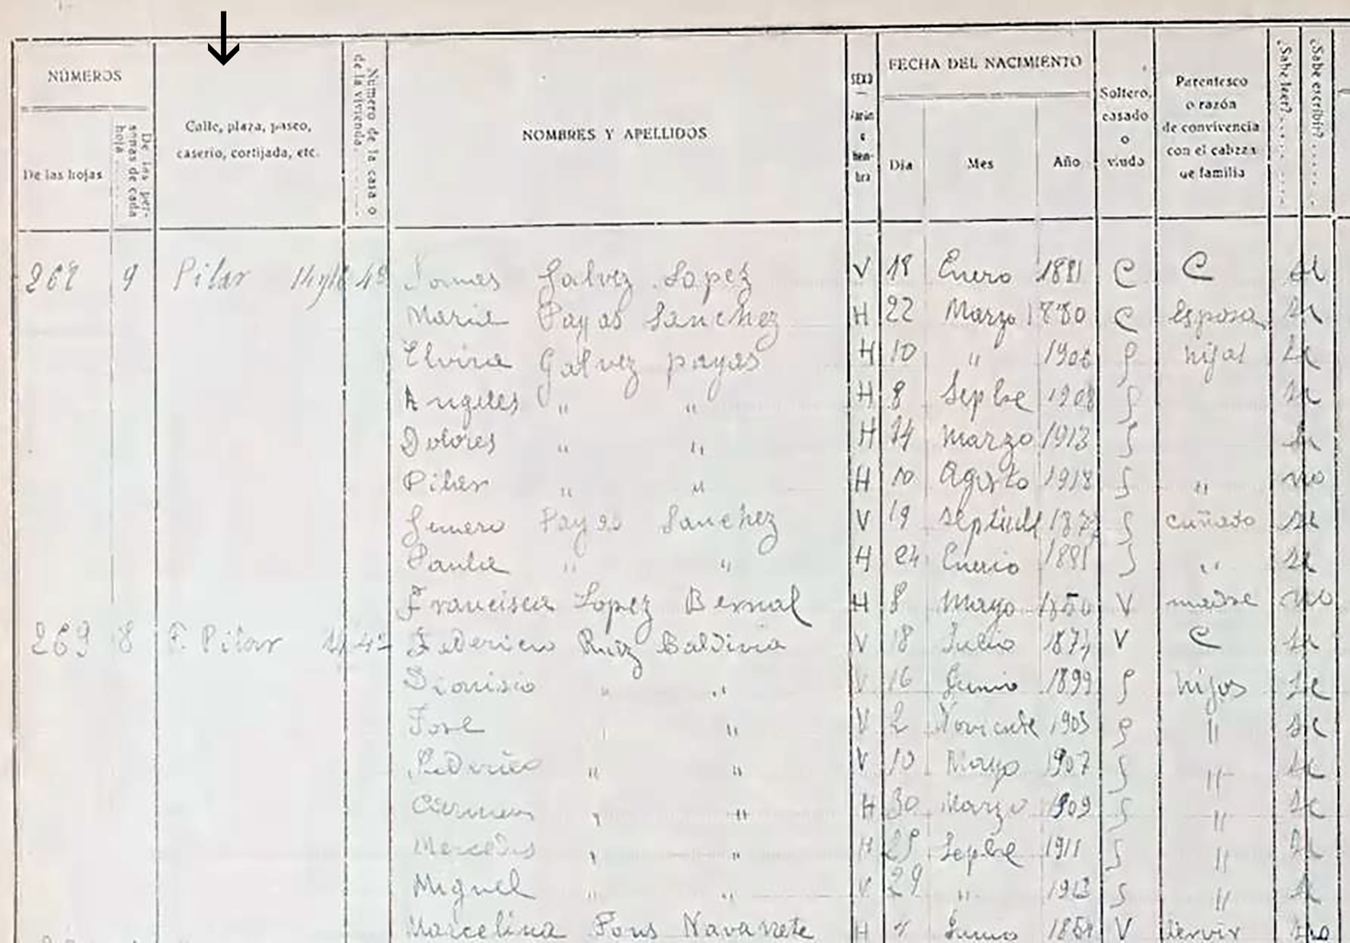 NÚMEROS
De las hojas
De las personas de cada hoja
Calle, plaza, paseo,
caserio, cortijada, etc.
Número de la casa o de la vivienda
NOMBRES Y APELLIDOS
SEXO
Varón
o
hem-
bra
FECHA DEL NACIMIENTO
Día
Mes
Año
Soltero,
casado
o
viudo
Parentesco
o razón
de convivencia
con el cabeza
de familia
¿Sabe leer?
¿Sabe escribir?
9 Pilar Galvez Lopez V 18 Enero 1881 C C si
Maria Payas Sanchez H 22 Marzo 1880 C Esposa si
Elvira Galvez payas H 10 " S hijas si
Angeles " " H 8 Sepbre 1908 S si
Dolores " " H 14 Marzo 1913 S si
Pilar " " H 10 Agosto 1918 S " no
Payas Sanchez V 19 S cuñado si
Paula " " H 24 Enerio 1881 S " si
Francisca Lopez Bernal H 8 Mayo 1850 V madre no
269 8 F. Pilar Federico Ruiz Baldivia V 18 Julio 1874 V C si
Dionisio " " V 16 Junio 1899 S hijos si
Jose " " V 2 S " si
Federico " " V 10 Mayo 1907 S " si
Carmen " " H 30 Marzo 1909 S " si
Mercedes " " H Sepbre 1911 S " si
Miguel " " V 29 " 1913 S " si
Marcelina Pons Navarrete H Junio V